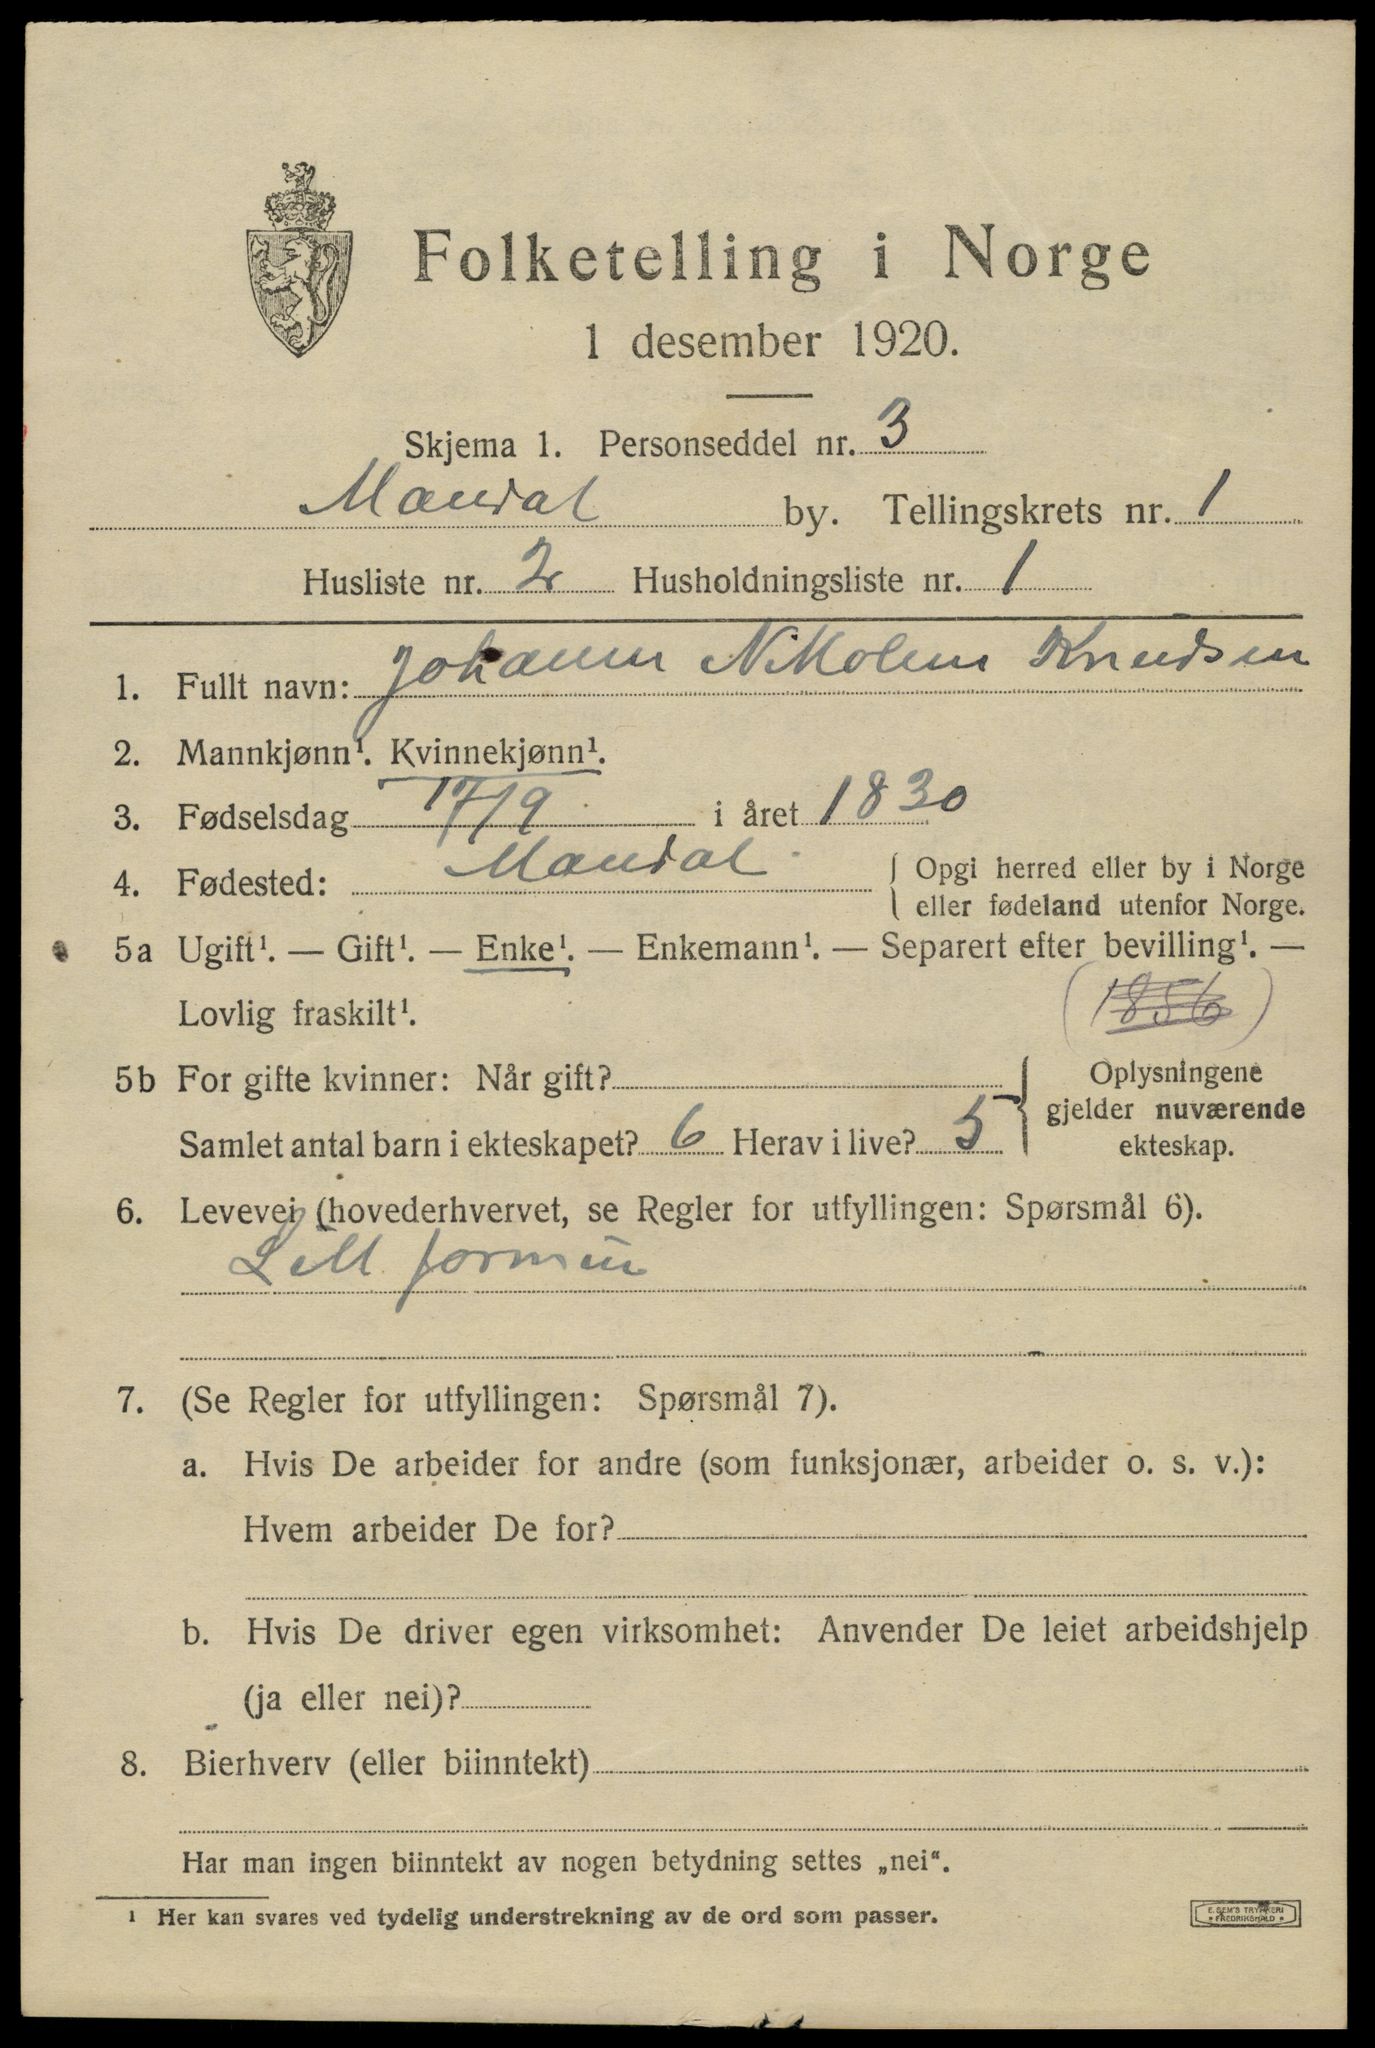 Folketelling i Norge
1 desember 1920.
Skjema 1. Personseddel nr. 3
Mandal by. Tellingskrets nr. 1
Husliste nr. 2 Husholdningsliste nr. 1
1. Fullt navn: Johanne Nikoline Knudsen
2. Mannkjønn¹. Kvinnekjønn¹.
3. Fødselsdag 17/9 i året 1830
4. Fødested: Mandal { Opgi herred eller by i Norge
eller fødeland utenfor Norge.
5a Ugift¹. — Gift¹. — Enke¹. — Enkemann¹. — Separert efter bevilling¹. —
Lovlig fraskilt¹. (1856)
5b For gifte kvinner: Når gift? } Oplysningene
gjelder nuværende
Samlet antal barn i ekteskapet? 6 Herav i live? 5
ekteskap.
6. Levevei (hovederhvervet, se Regler for utfyllingen: Spørsmål 6).
7. (Se Regler for utfyllingen: Spørsmål 7).
a. Hvis De arbeider for andre (som funksjonær, arbeider o. s. v.):
Hvem arbeider De for?
b. Hvis De driver egen virksomhet: Anvender De leiet arbeidshjelp
(ja eller nei)?
8. Bierhverv (eller biinntekt)
Har man ingen biinntekt av nogen betydning settes „nei“.
¹ Her kan svares ved tydelig understrekning av de ord som passer.
E. SEM'S TRYKKERI
* FREDRIKSHALD *